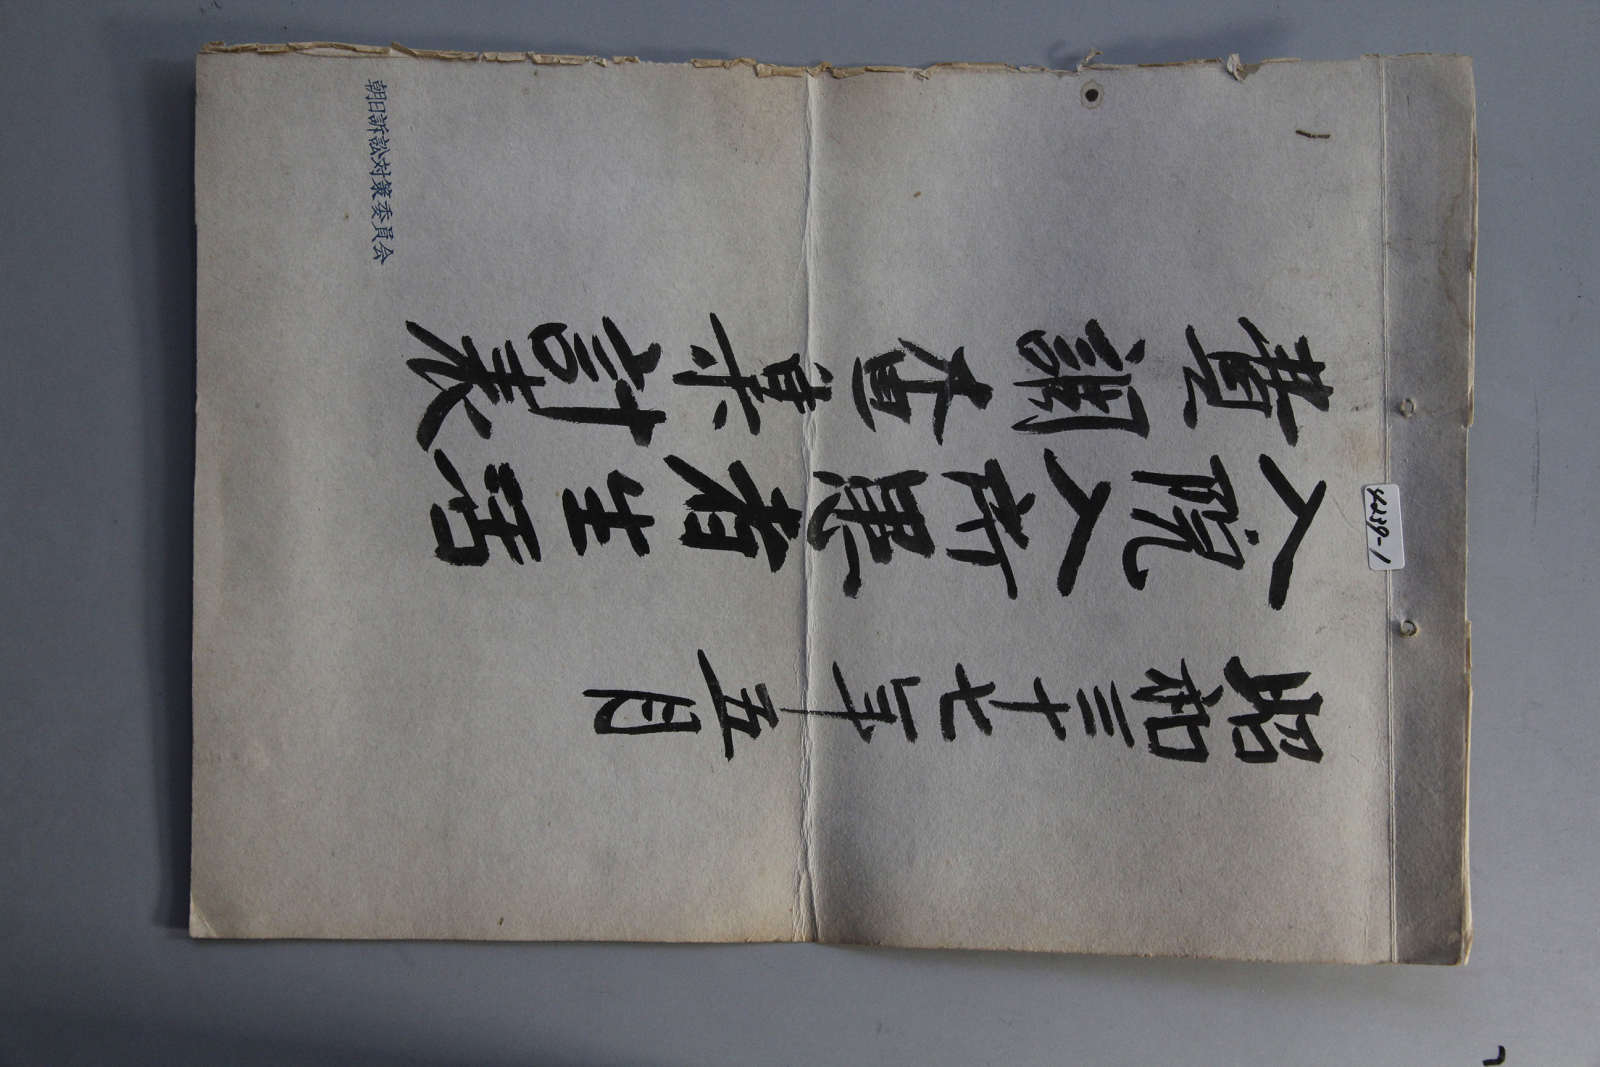 4239-1
昭和三十七年五月
入院入所患者生活
費調査集計表
朝日訴訟対策委員会